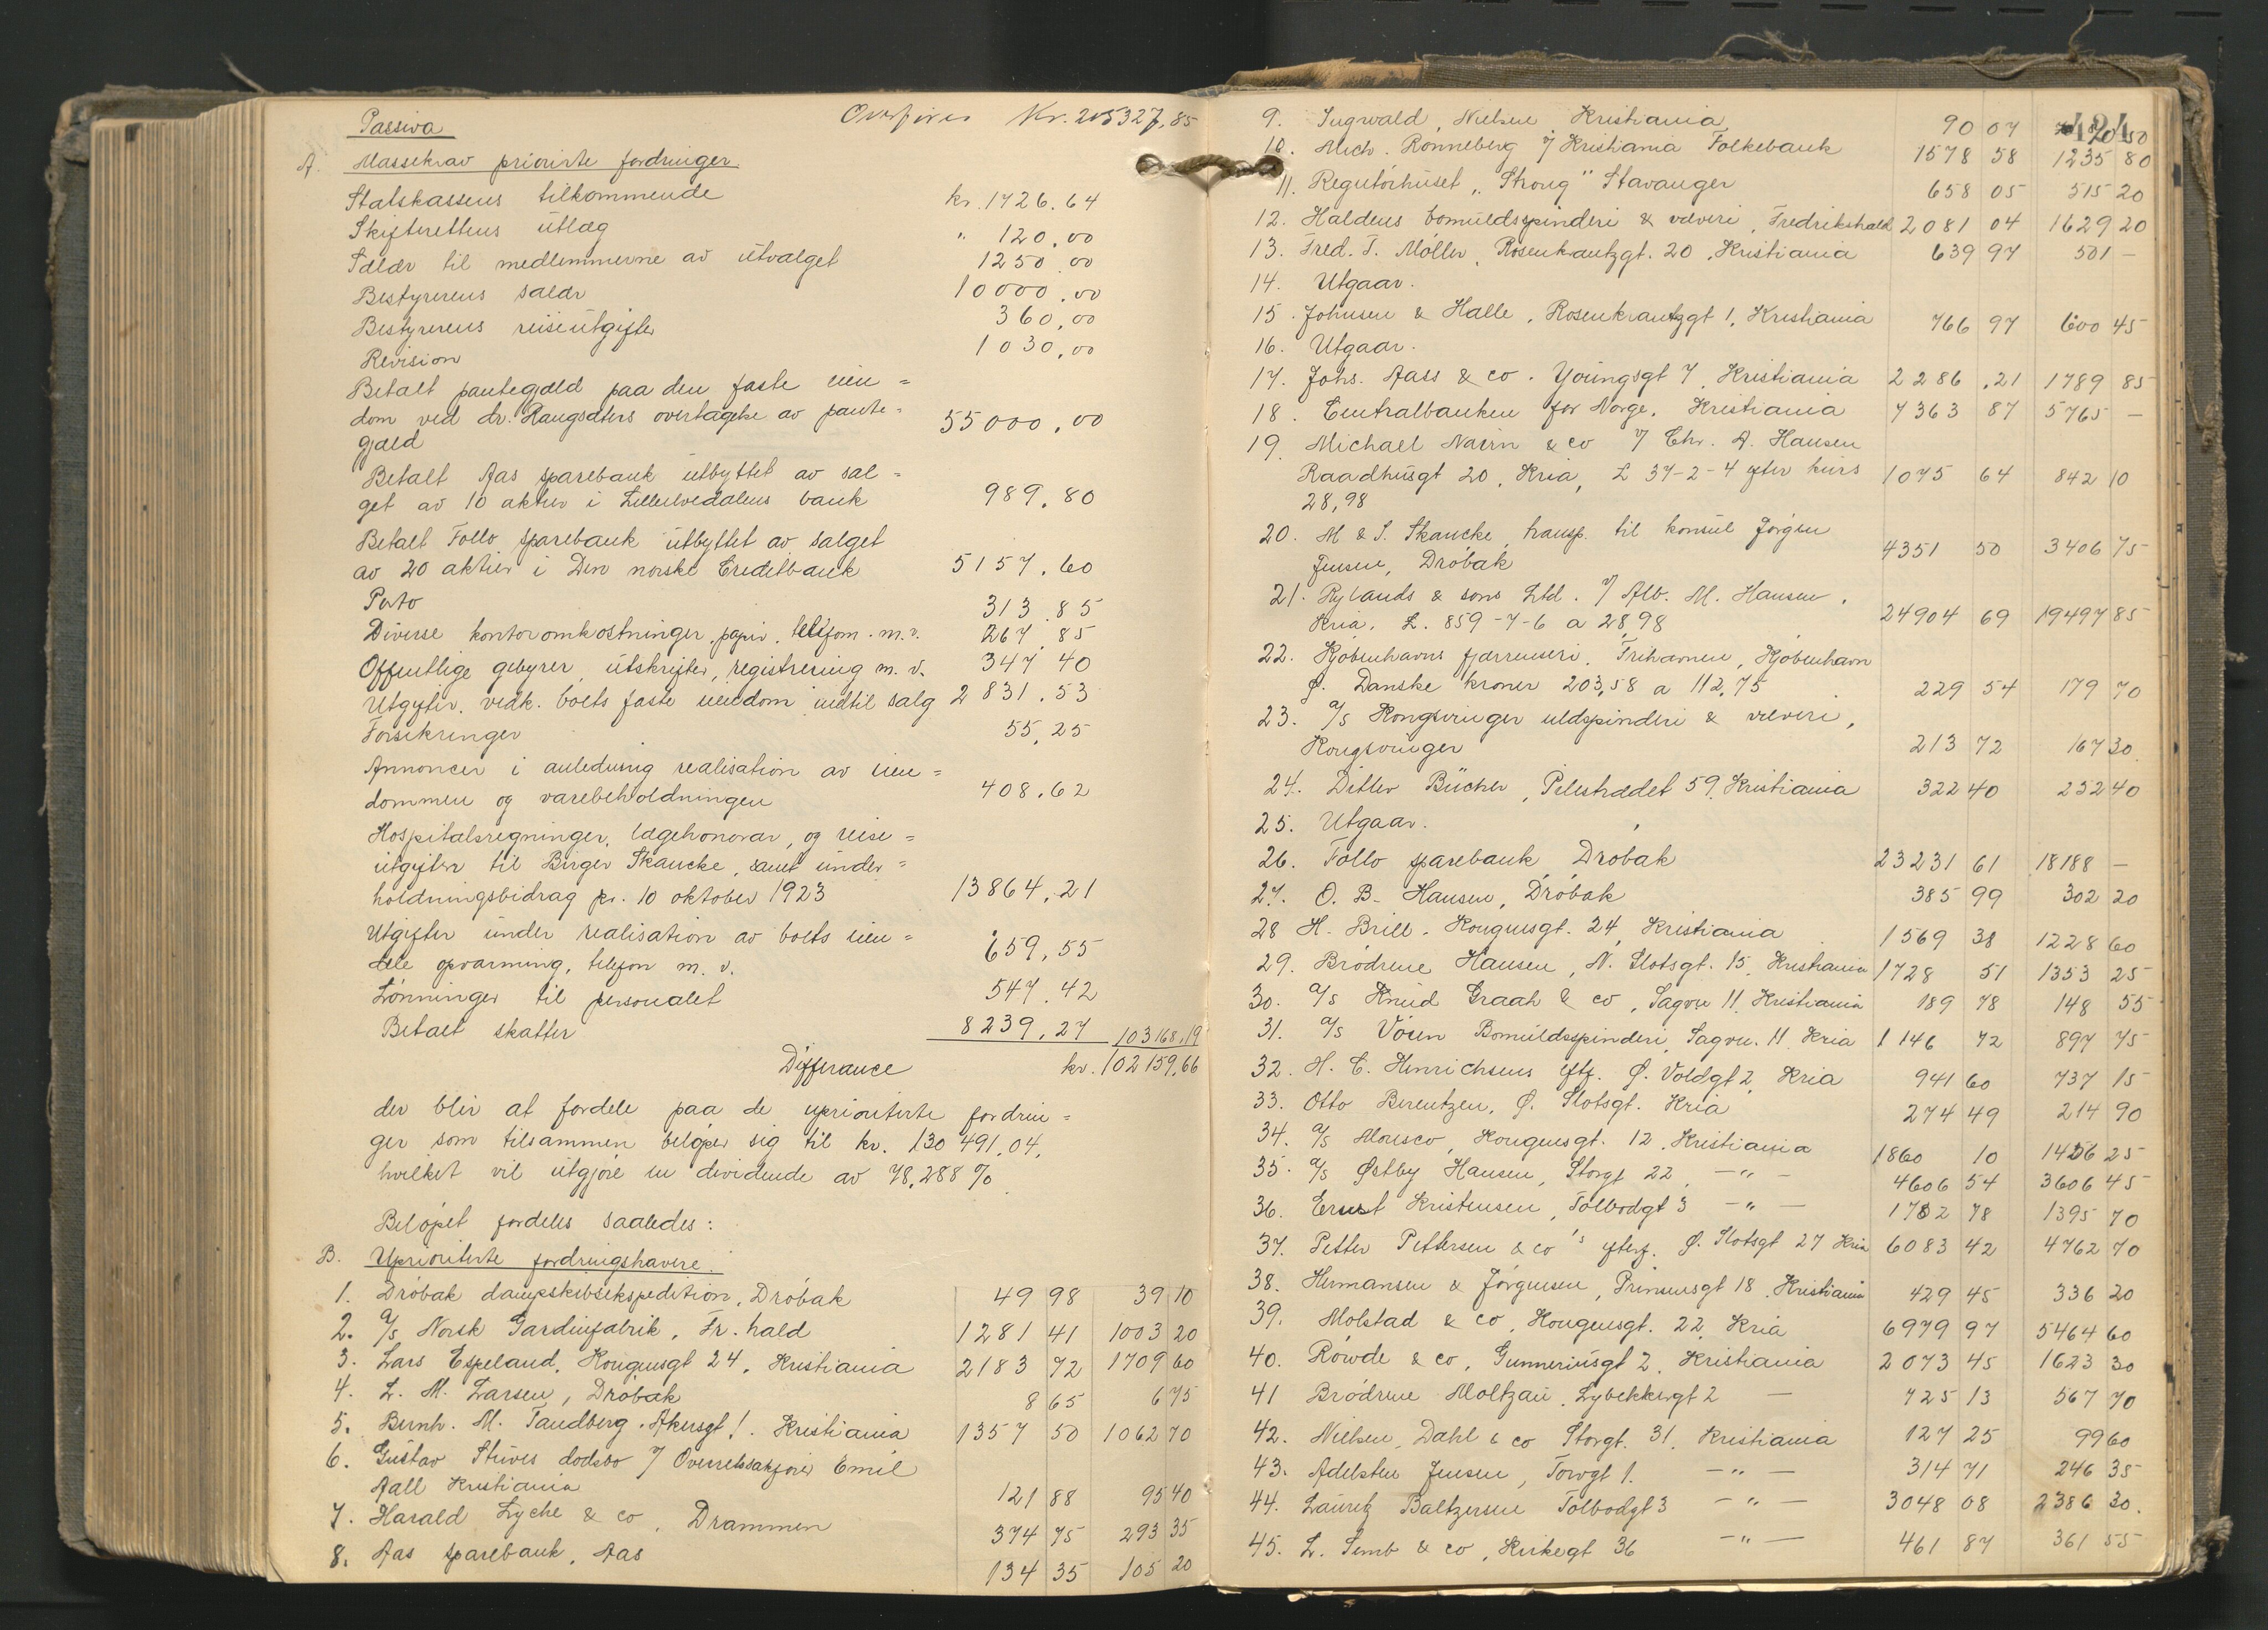 Overføres Kr. 205327,85
Passiva
A. Massekrav prioriterte fordringer
Statskassens tilkommende kr. 1726.64
Skifterettens utlæg " 120.00
Salær til medlemmerne av utvalget 1250.00
Bestyrerens salær 10000.00
Bestyrerens reiseutgifter 360,00
Revision 1030,00
Betalt pantegjæld paa den faste eien=
dom ved dr. Haugsæters overtagelse av pante=
gjæld 55000,00
Betalt Aas sparebank utbyttet av sal=
get av 10 aktier i Lilleelvedalens bank 989.80
Betalt Follo sparebank utbyttet av salget
av 20 aktier i Den norske Creditbank 5157.60
Porto 313.85
Diverse kontoromkostninger, papir, telefon. m.v. 267.85
Offentlige gebyrer, utskrifter, registrering m.v. 347 40
Utgifter vedk. boets faste eiendom indtil salg 2831.53
Forsikringer 55,25
Annoncer i anledning realisation av eien=
dommen og varebeholdningen 408.62
Hospitalsregninger, lægehonorar, og reise=
utgifter til Birger Skancke, samt under=
holdningsbidrag pr. 10 oktober 1923 13864.21
Utgifter under realisation av boets eien=
dele opvarming, telefon m.v. 659,55
Lønninger til personalet 547.42
Betalt skatter 8239.27 103168.19
Differance kr. 102159,66
der blir at fordele paa de uprioriterte fordrin=
ger som tilsammen beløper sig til kr. 130491,04,
hvilket vil utgjøre en dividende av 78,288 %
Beløpet fordeles saaledes:
B. Uprioriterte fordringshavere.
1. Drøbak dampskibsekspedition, Drøbak 49 98 39 10
2. A/S Norsk Gardinfabrik, Fr.hald 1281 41 1003 20
3. Lars Espeland, Kongensgt 24, Kristiania 2183 72 1709 60
4. L. M. Larsen, Drøbak 8 65 6 75
5. Bernh. M. Tandberg. Akersgt 1. Kristiania 1357 50 1062 70
6. Gustav Stüves dødsbo v/ Overretssakfører Emil
Aall Kristiania 121 88 95 40
7. Harald Lyche & co, Drammen 374 75 293 35
8. Aas sparebank, Aas 134 35 105 20
424
9. Ingwald Nielsen Kristiania 90 07 70 50
10. Mich. Rønneberg v/ Kristiania Folkebank 1578 58 1235 80
11. Regutorhuset "Strong" Stavanger 658 05 515 20
12. Haldens bomuldsspinderi & væveri, Fredrikshald 2081 04 1629 20
13. Fred. T. Møller, Rosenkrantzgt. 20, Kristiania 639 97 501 —
14. Utgaar.
15. Johnsen & Halle, Rosenkrantzgt 1, Kristiania 766 97 600 45
16. Utgaar.
17. Johs. Aass & co. Youngsgt 7, Kristiania 2286.21 1789 85
18. Centralbanken for Norge, Kristiania 7363 87 5765 —
19. Michael Nairn & co v/ Chr. A. Hansen
Raadhusgt 20, Kria, £ 37-2-4 efter kurs 1075 64 842 10
28,98
20. M & S. Skancke, transp. til konsul Jørgen
Jensen, Drøbak 4351 50 3406 75
21. Rylands & sons Ltd. v/ Alb. M. Hansen,
Kria, £. 859-7-6 a 28,98 24904 69 19497 85
22. Kjøbenhavns fjærrenseri, Frihavnen, Kjøbenhavn
Ø. Danske kroner 203,58 a 112,75 229 54 179 70
23. A/S Kongsvinger uldspinderi & væveri,
Kongsvinger 213 72 167 30
24. Ditlev Bücher, Pilestrædet 59, Kristiania 322 40 252 40
25. Utgaar.
26. Follo sparebank, Drøbak 23231 61 18188 —
27. O. B. Hansen, Drøbak 385 99 302 20
28 H. Brill. Kongensgt. 24, Kristiania 1569 38 1228 60
29. Brødrene Hansen, N. Slotsgt. 15, Kristiania 1728 51 1353 25
30. A/S Knud Graah & co, Sagvn 11, Kristiania 189 78 148 55
31. A/S Vøien Bomuldsspinderi, Sagvn. 11 Kria 1146 72 897 75
32. H. C. Henrichsens eftf. Ø. Voldgt 2, Kria 941 60 737 15
33. Otto Berentzen, Ø. Slotsgt. Kria 274 49 214 90
34. A/S Monsco, Kongensgt. 12, Kristiania 1860 10 1456 25
35. A/S Østby Hansen, Storgt 22, —"— 4606 54 3606 45
36. Ernst Kristensen, Tolbodgt 3 —"— 1782 78 1395 70
37. Petter Pettersen & co's efterf. Ø. Slotsgt 27 Kria 6083 42 4762 70
38. Hermansen & Jørgensen, Prinsensgt 18, Kristiania 429 45 336 20
39. Molstad & co, Kongensgt. 22, Kria 6979 97 5464 60
40. Røwde & co, Gunneriusgt 2, Kristiania 2073 45 1623 30
41 Brødrene Moltzau, Lybekkergt 2 — 725 13 567 70
42. Nielsen, Dahl & co Storgt. 31, Kristiania 127 25 99 60
43. Adelsten Jensen, Torvgt 1. —"— 314 71 246 35
44. Lauritz Baltzersen Tolbodgt 3 —"— 3048 08 2386 30.
45. L. Semb & co, Kirkegt 36 —"— 461 87 361 55